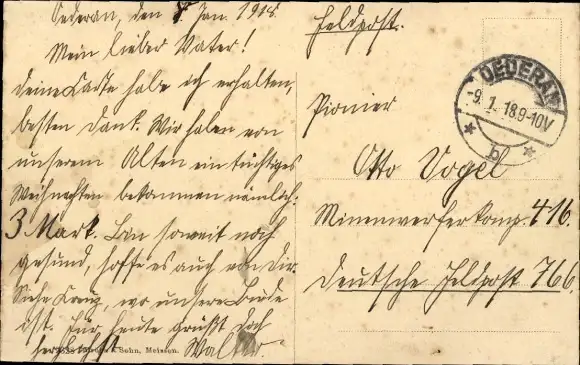 Oederan, den 8. Jan. 1918.
Mein lieber Vater!
deine Karte habe ich erhalten,
besten Dank. Wir haben von
unserem Alten ein tüchtiges
Weihnachten bekommen nämlich:
3 Mark. Bin soweit noch
gesund, hoffe es auch von dir.
Siehe Kreuz, wo unsere Bude
ist. Für heute grüßt dich
herzlichst Walter.
& Sohn, Meissen.
Feldpost.
OEDERAN
-9.1.18.9-10V
* b *
Pionier
Otto Vogel
Minenwerferkomp. 416.
Deutsche Feldpost 766.